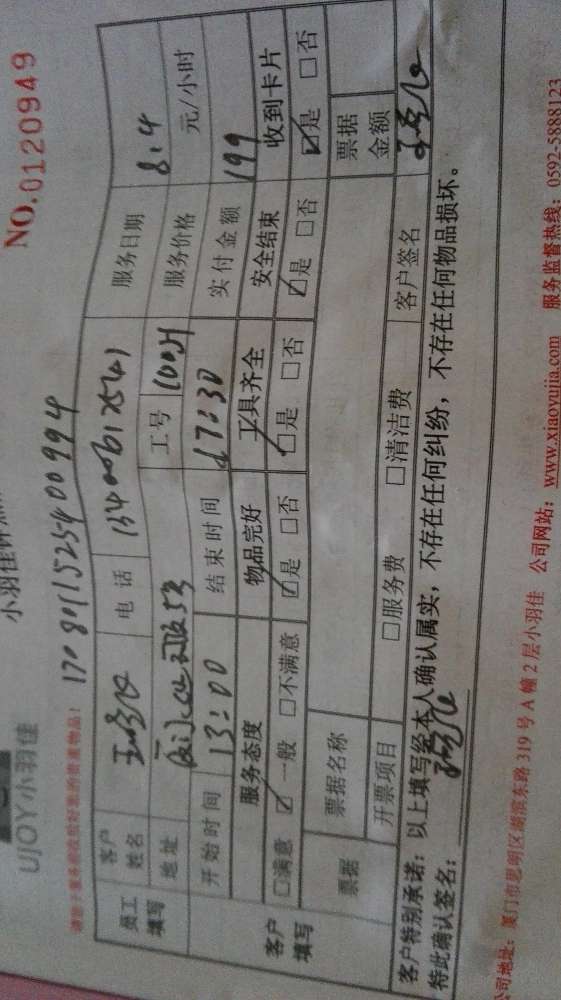 NO.0120949
UJOY小羽佳
请您于服务前收放好您的贵重物品!
1708011525400994
员工填写 客户姓名 电话 服务日期 8.4
地址 工号 服务价格 元/小时
开始时间 13:00 结束时间 17:30 实付金额 199
客户填写 服务态度 物品完好 工具齐全 安全结束 收到卡片
□满意 ☑一般 □不满意 ☑是 □否 ☑是 □否 ☑是 □否 ☑是 □否
票据 票据名称 票据金额
开票项目 □服务费 □清洁费 客户签名
客户特别承诺: 以上填写经本人确认属实, 不存在任何纠纷, 不存在任何物品损坏。
特此确认签名:
公司地址: 厦门市思明区湖滨东路 319 号 A 幢 2 层小羽佳 公司网站: www.xiaoyujia.com 服务监督热线: 0592-5888123